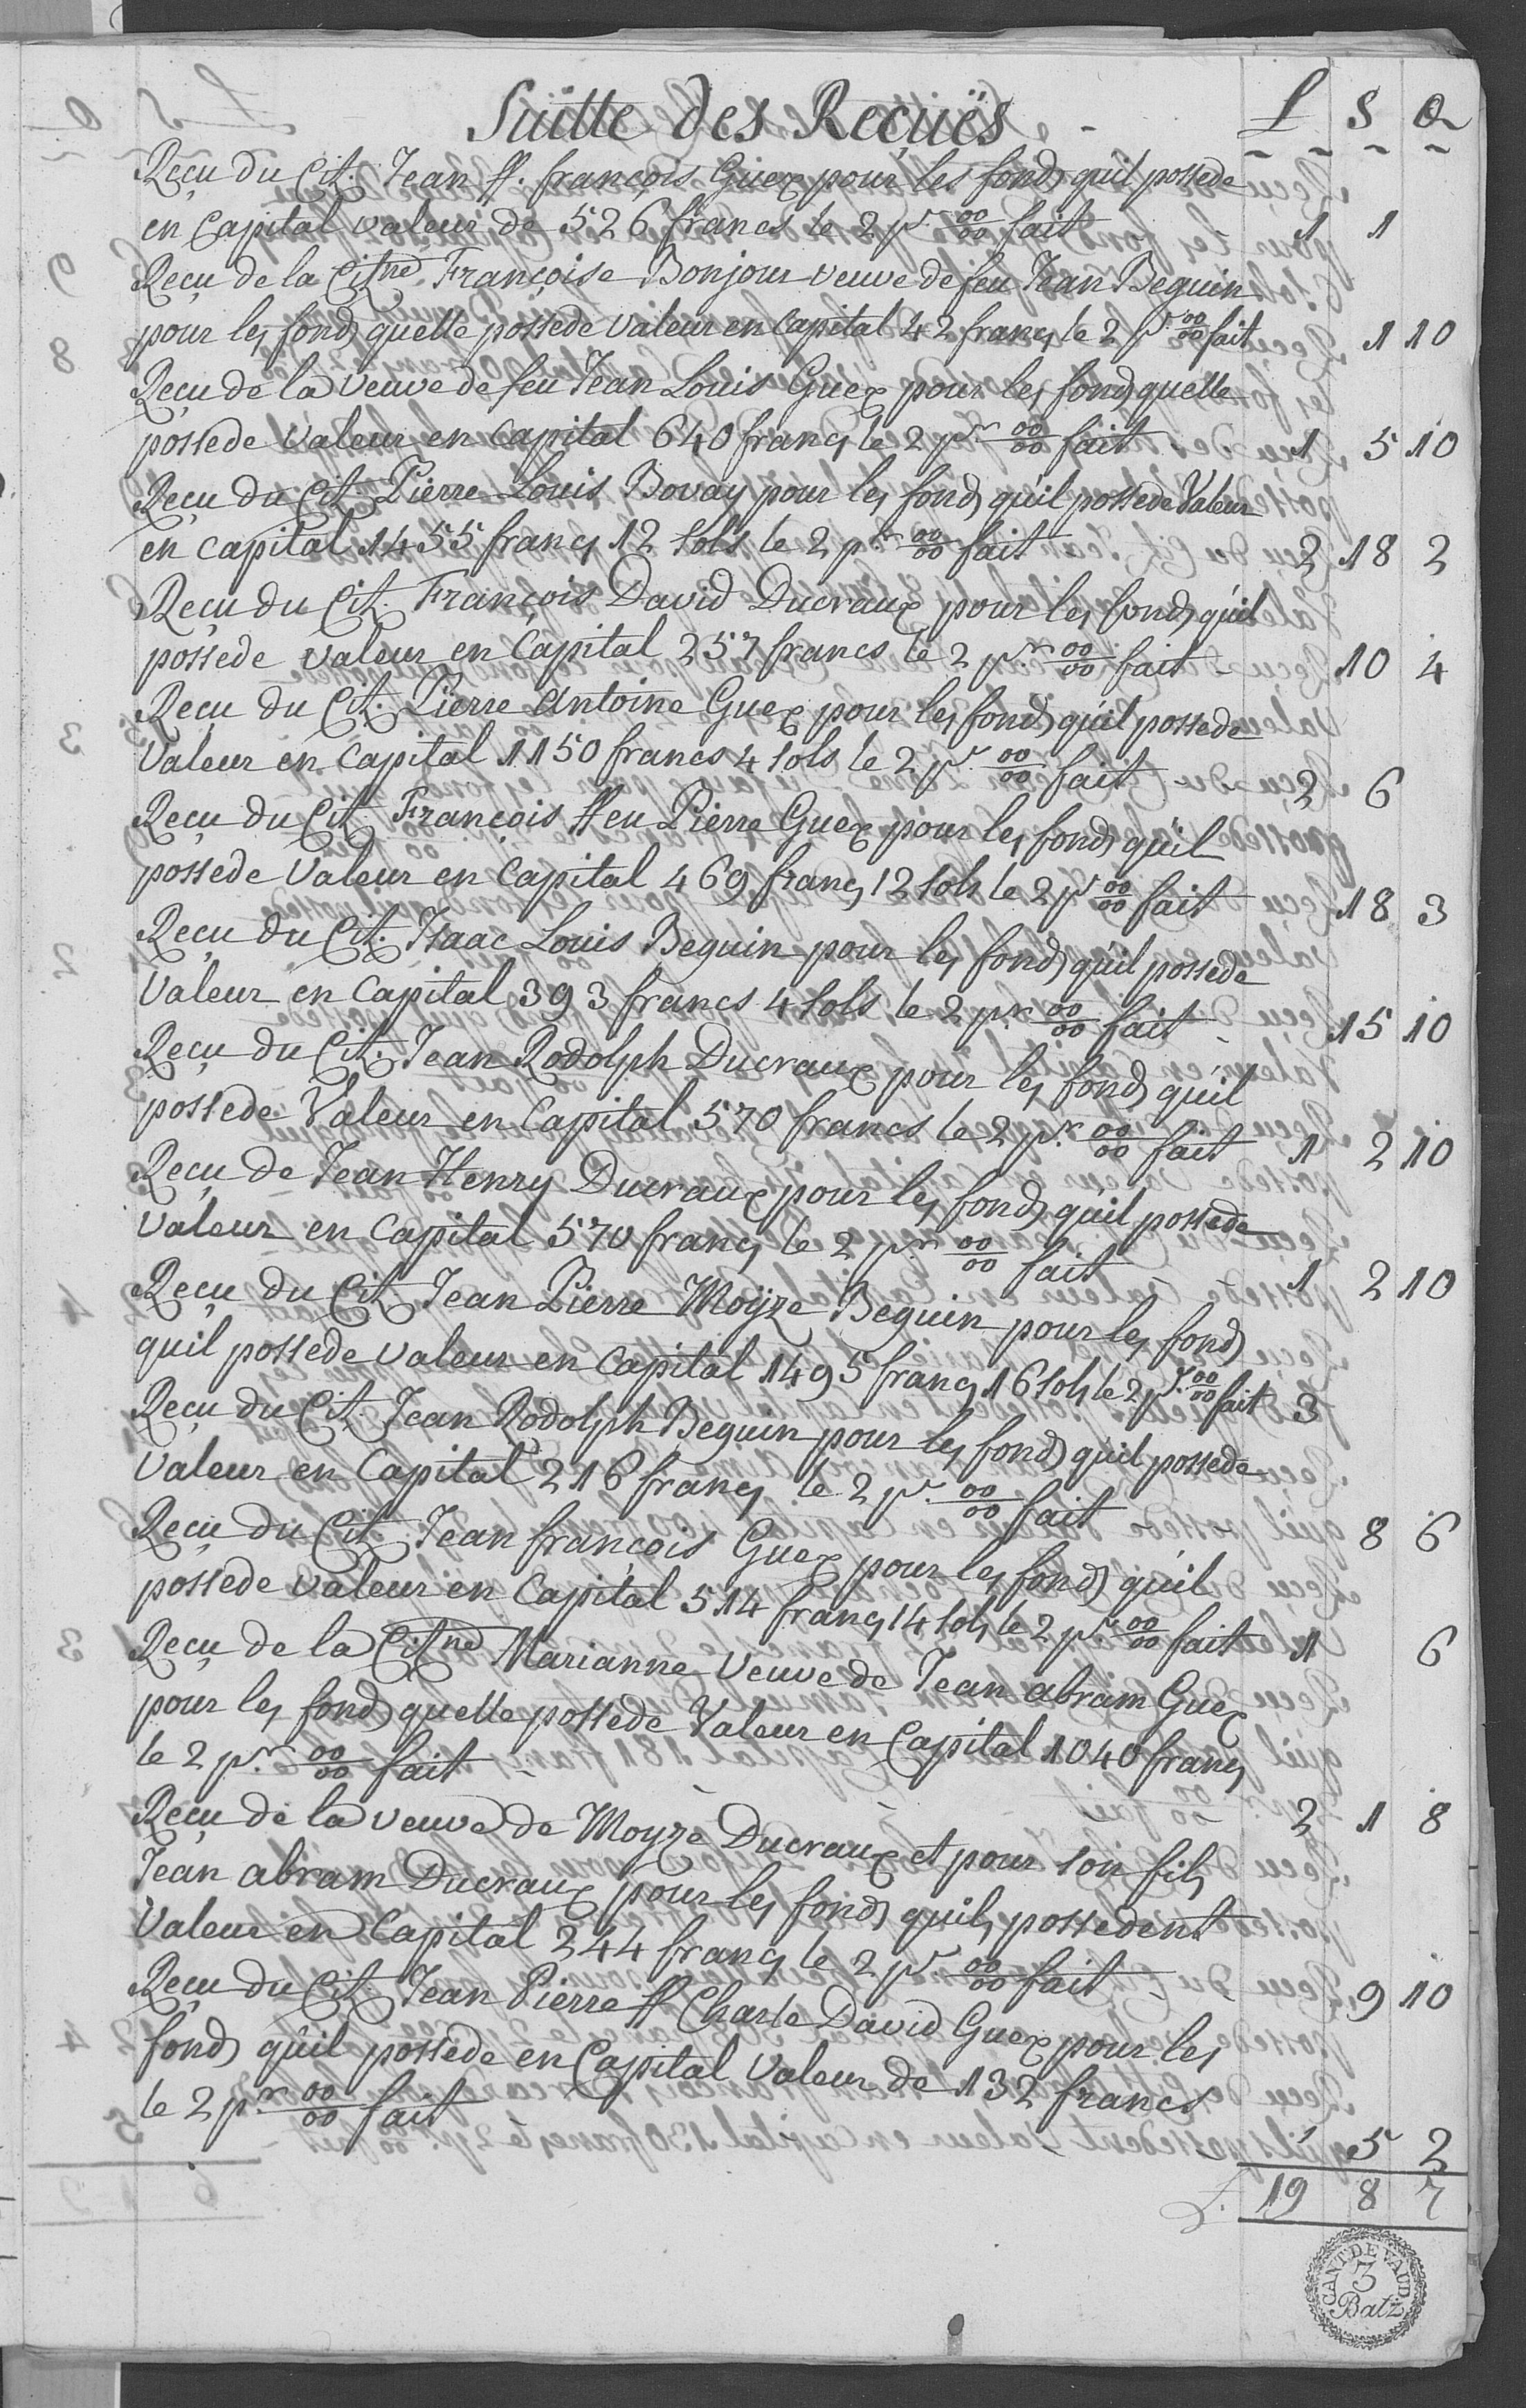 Suitte des Reçuës L S D
Reçu du Cit. Jean ff. françois Guex pour les fonds quil possede
en Capital valeur de 526 francs le 2 pr. 00/00 fait 1 1
Reçu de la Citne Françoise Bonjour veuve de feu Jean Beguin
pour les fonds quelle possede Valeur en Capital 42 francs le 2 pr. 00/00 fait 1 10
Reçu de la veuve de feu Jean Louis Guex pour les fonds quelle
possede Valeur en Capital 640 francs le 2 pr. 00/00 fait 1 5 10
Reçu du Cit. Pierre Louis Bovay pour les fonds qu'il possede Valeur
en capital 1455 francs 12 sols le 2 pr. 00/00 fait 2 18 2
Reçu du Cit. François David Ducraux pour les fonds qu'il
possede valeur en Capital 257 francs le 2 pr. 00/00 fait - 10 4
Reçu du Cit. Pierre Antoine Guex pour les fonds qu'il possede
Valeur en Capital 1150 francs 4 sols le 2 pr. 00/00 fait - - 2 6
Reçu du Cit. François ffeu Pierre Guex pour les fonds qu'il
possede Valeur en Capital 469 francs 12 sols le 2 pr 00/00 fait 18 3
Reçu du Cit. Isaac Louis Beguin pour les fonds qu'il possede
Valeur en Capital 393 francs 4 sols le 2 pr. 00/00 fait - 15 10
Reçu du Cit. Jean Rodolph Ducraux pour les fonds qu'il
possede Valeur en Capital 570 francs le 2 pr. 00/00 fait 1 2 10
Reçu de Jean Henry Ducraux pour les fonds qu'il possede
Valeur en Capital 570 francs le 2 pr. 00/00 fait - - 1 2 10
Reçu du Cit. Jean Pierre Moÿze Beguin pour les fonds
quil possede valeur en Capital 1495 francs 16 sols le 2 pr. 00/00 fait 3
Reçu du Cit. Jean Rodolph Beguin pour les fonds qu'il possede
Valeur en Capital 216 francs le 2 pr. 00/00 fait 8 6
Reçu du Cit. Jean françois Guex pour les fonds qu'il
possede valeur en Capital 514 francs 14 sols le 2 pr. 00/00 fait 1 6
Reçu de la Citne Marianne Veuve de Jean abram Guex
pour les fonds quelle possede Valeur en Capital 1040 francs
le 2 pr. 00/00 fait - - - 2 1 8
Reçu de la veuve de Moyze Ducraux et pour son fils
Jean abram Ducraux pour les fonds quils possedent
Valeur en Capital 244 francs le 2 pr. 00/00 fait - - 9 10
Reçu du Cit. Jean Pierre ff Charle David Guex pour les
fonds qu'il possede en Capital Valeur de 132 francs
le 2 pr. 00/00 fait - - 5 2
L. 19 8 7
CANT. DE VAUD
3
Batz